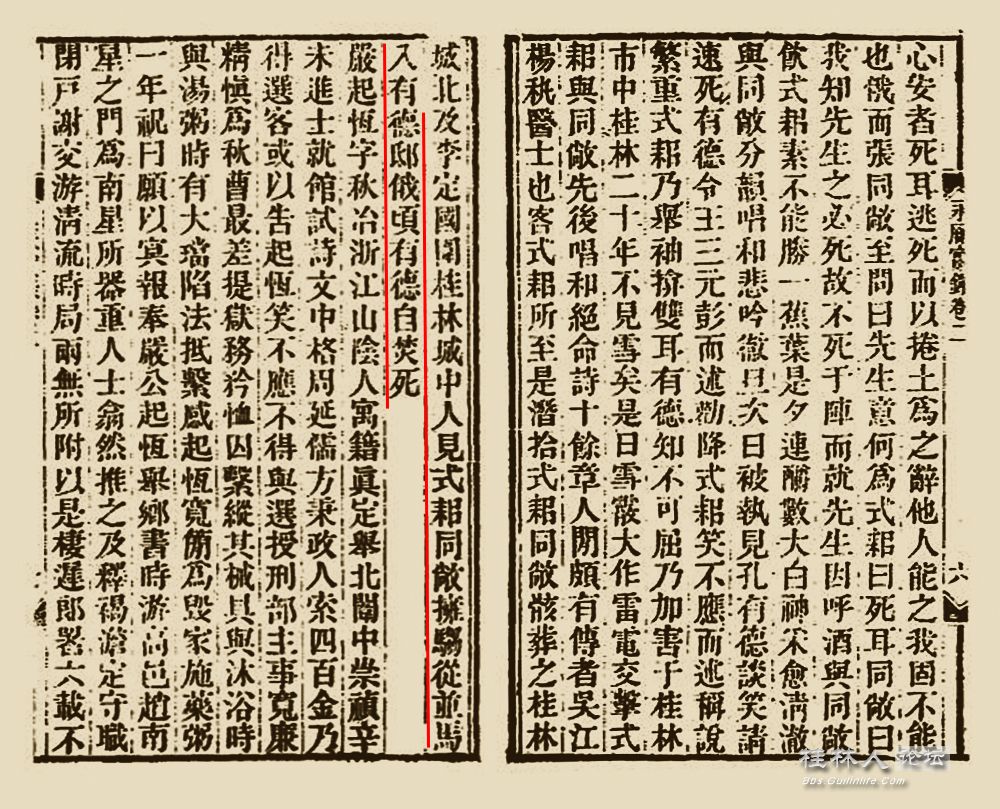 心安者死耳逃死而以捲土爲之辭他人能之我固不能
也俄而張同敞至問曰先生意何爲式耜曰死耳同敞曰
我知先生之必死故不死于陣而就先生因呼酒與同敞
飲式耜素不能勝一蕉葉是夕連酹數大白神采愈淸澈
與同敞分韻唱和悲吟徹旦次日被執見孔有德談笑請
速死有德令王三元彭而述勸降式耜笑不應而述稱說
繁重式耜乃舉袖揜雙耳有德知不可屈乃加害于桂林
市中桂林二十年不見雪矣是日雪霰大作雷電交擊式
耜與同敞先後唱和絕命詩十餘章人閒頗有傳者吳江
楊秇醫士也客式耜所至是潛拾式耜同敞骸葬之桂林
永曆實錄卷二
六
城北及李定國圍桂林城中人見式耜同敞擁騶從並馬
入有德邸俄頃有德自焚死
嚴起恆字秋冶浙江山陰人寓籍眞定舉北闈中崇禎辛
未進士就館試詩文中格周延儒方秉政人索四百金乃
得選客或以吿起恆笑不應不得與選授刑部主事寬廉
精愼爲秋曹最差提獄務矜恤囚繫縱其械具與沐浴時
與湯粥時有大璫陷法抵繫感起恆寬衈爲毀家施藥粥
一年祝曰願以冥報奉嚴公起恆舉鄉書時游高邑趙南
星之門爲南星所器重人士翕然推之及釋褐澹定守職
閉戸謝交游淸流時局兩無所附以是棲遲郎署六載不
桂林人论坛
Bbs.Guilinlife.Com